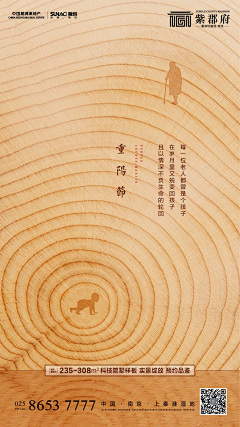 SUNAC 融创
紫郡府
重陽節
每一位老人都曾是个孩子
在岁月里又蜕变回孩子
且以情深不负生命的轮回
235-308m² 科技院墅样板 实景绽放 预约品鉴
025
8653 7777
中国·南京·上秦淮湿地